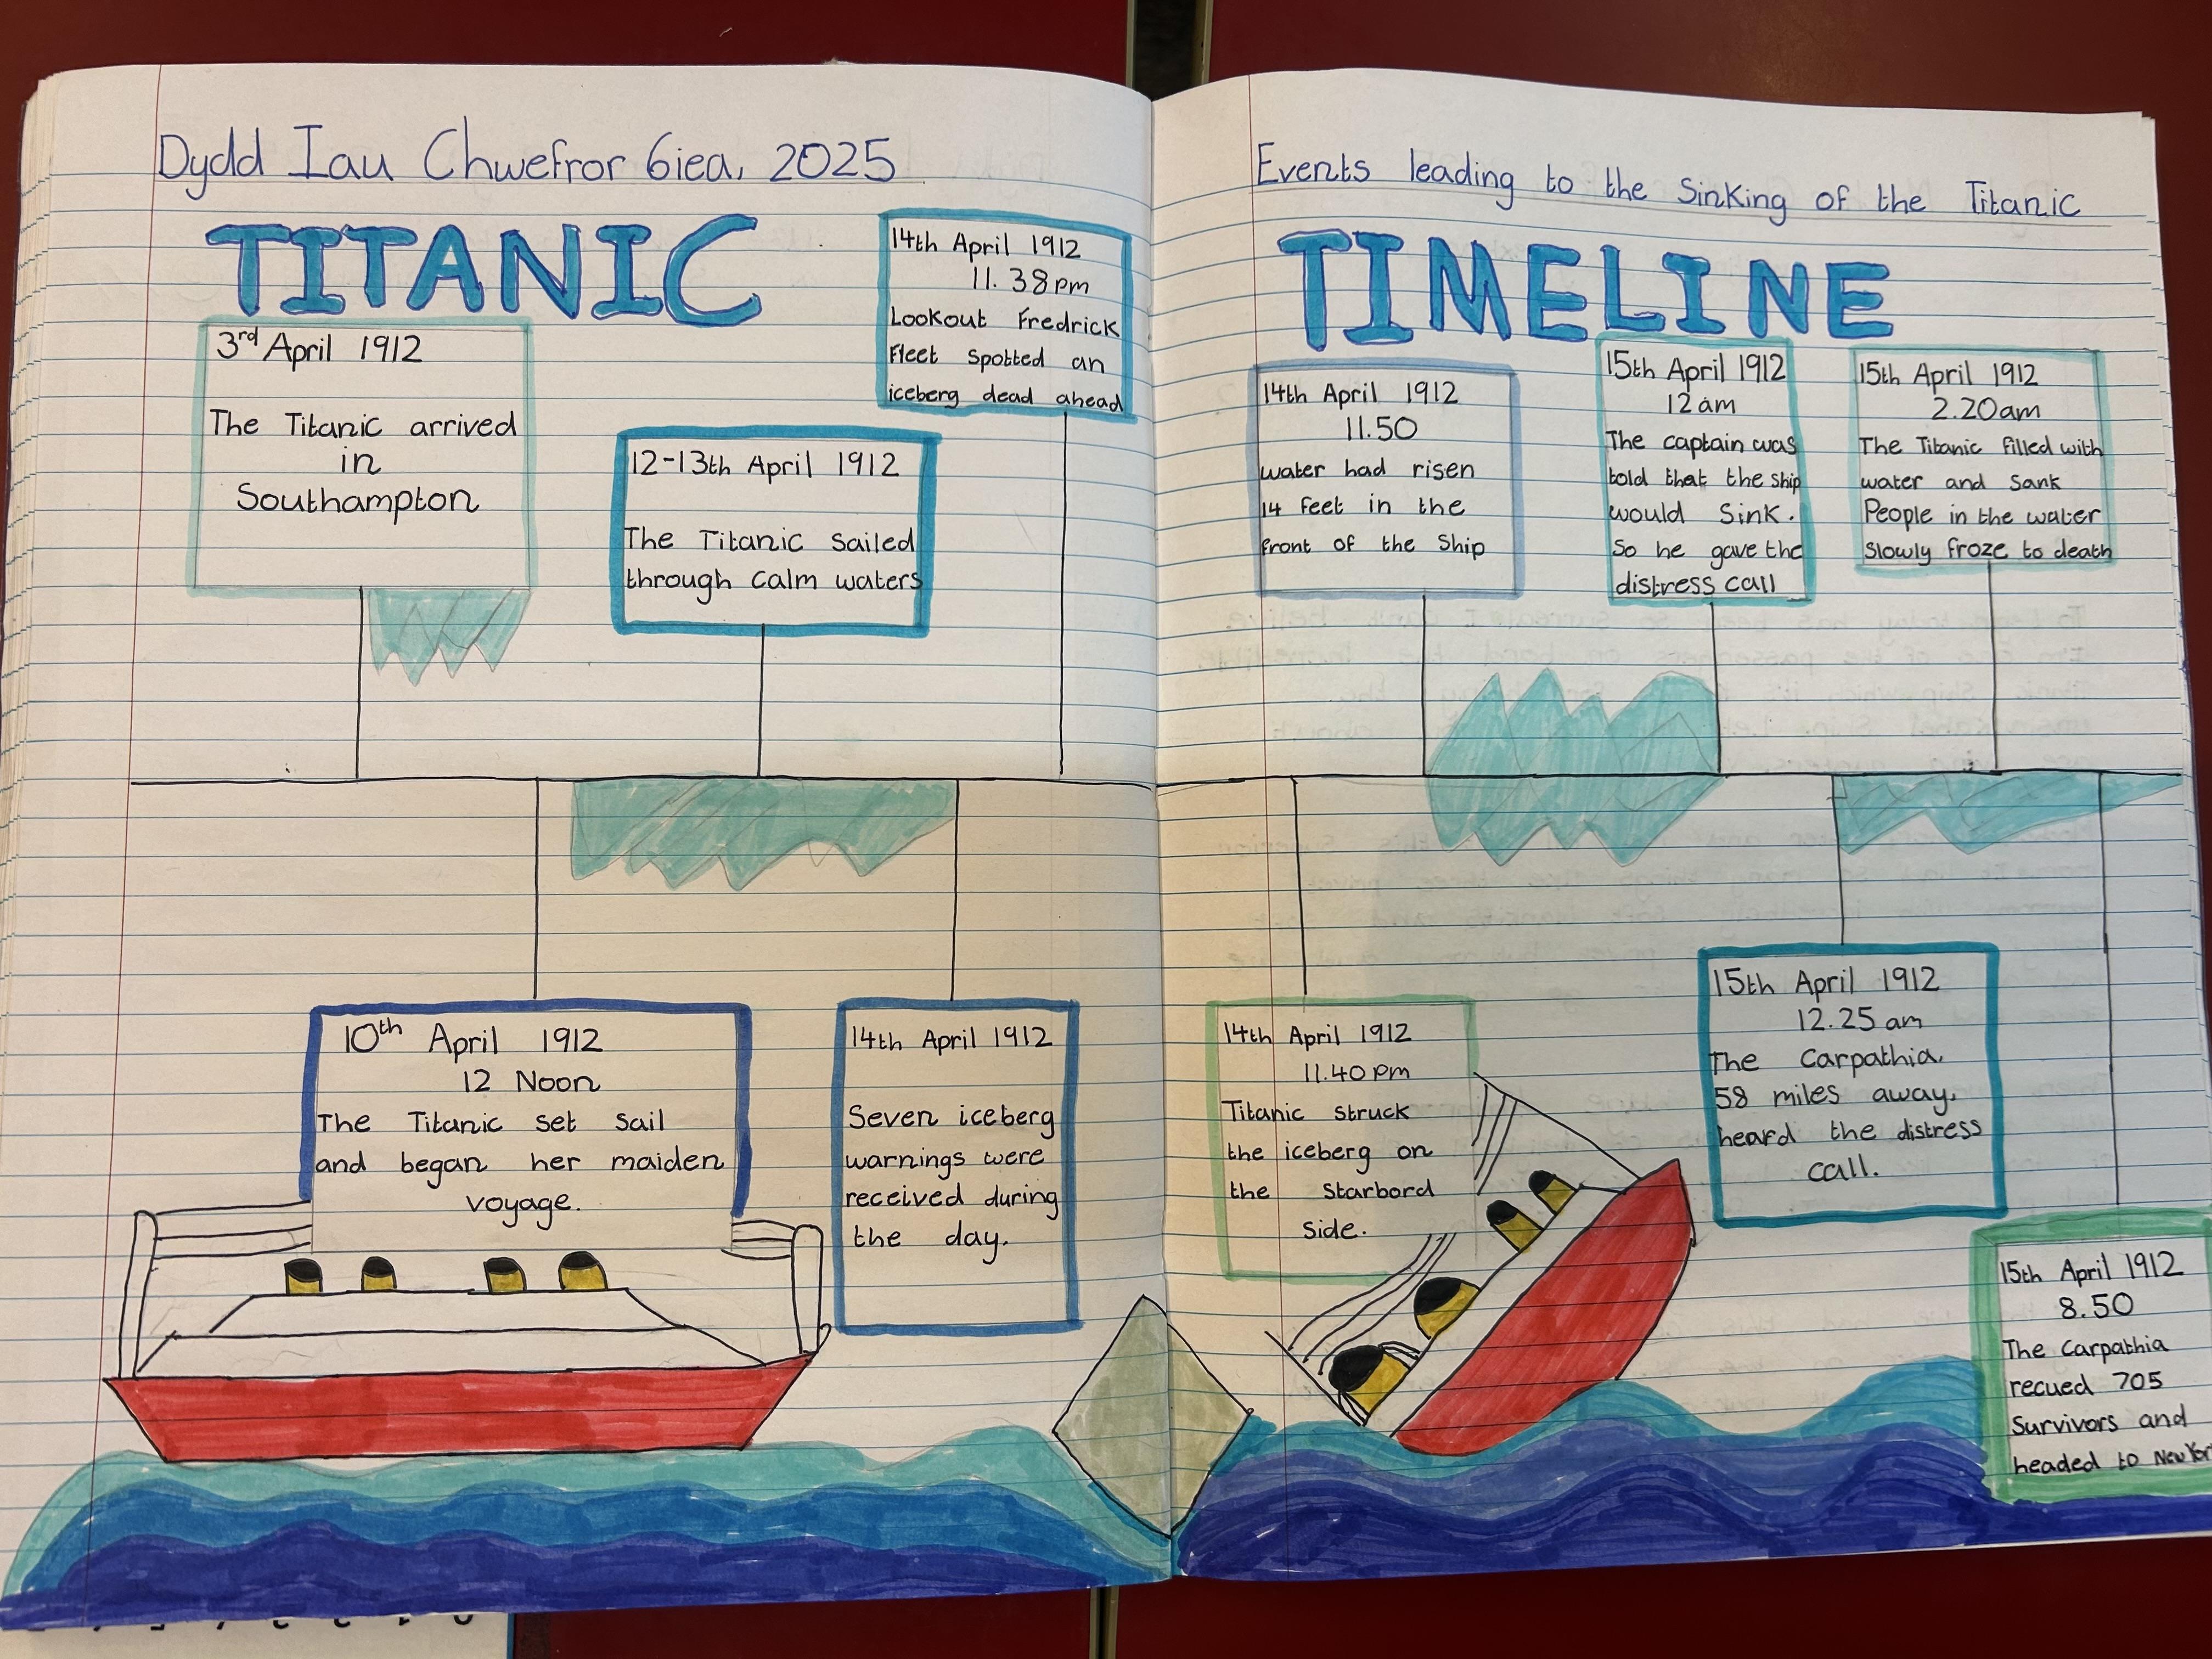 Dydd Iau Chwefror 6iea, 2025
TITANIC
3rd April 1912
The Titanic arrived
in
Southampton
12-13th April 1912
The Titanic sailed
through calm waters
14th April 1912
11.38pm
Lookout Fredrick
Fleet spotted an
iceberg dead ahead
10th April 1912
12 Noon
The Titanic set sail
and began her maiden
voyage.
14th April 1912
Seven iceberg
warnings were
received during
the day.
Events leading to the sinking of the Titanic
TIMELINE
14th April 1912
11.50
water had risen
14 feet in the
front of the ship
15th April 1912
12am
The captain was
told that the ship
would sink.
So he gave the
distress call
15th April 1912
2.20am
The Titanic filled with
water and sank
People in the water
slowly froze to death
14th April 1912
11.40pm
Titanic struck
the iceberg on
the starbord
side.
15th April 1912
12.25am
The Carpathia,
58 miles away,
heard the distress
call.
15th April 1912
8.50
The Carpathia
recued 705
survivors and
headed to New York